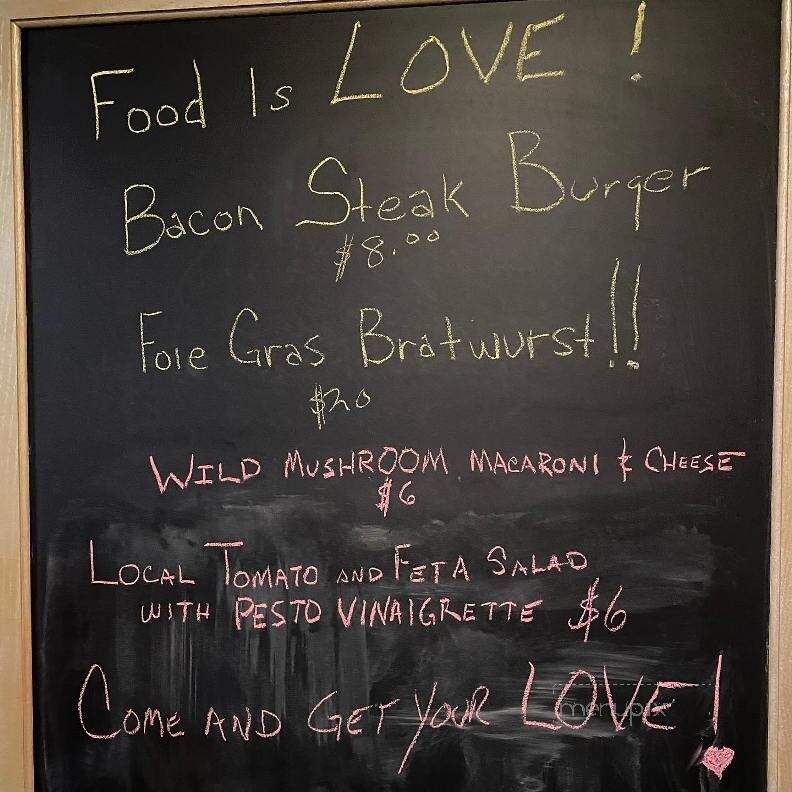 Food Is LOVE !
Bacon Steak Burger
$8.00
Foie Gras Bratwurst!!
$20
WILD MUSHROOM MACARONI & CHEESE
$6
LOCAL TOMATO AND FETA SALAD
WITH PESTO VINAIGRETTE $6
COME AND GET YOUR LOVE!
menupix